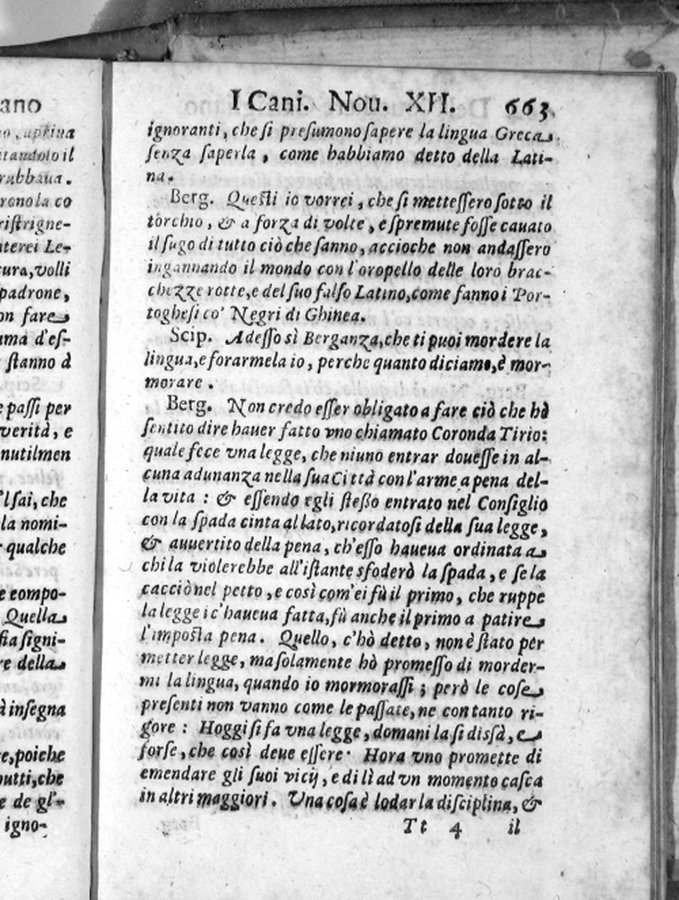 ano
o, apriua
itandolo il
rubbaua.
rono la co
ristrigne-
nterei Le-
tura, volli
padrone,
on fare
ama d'es-
e stanno à
e passi per
verità, e
nutilmen
'l sai, che
la nomi-
r qualche
e compo-
Quella
fia signi-
re della
à insegna
re, poiche
outti, che
e de gl'-
igno-
I Cani. Nou. XII. 663
ignoranti, che si presumono sapere la lingua Greca
senza saperla, come habbiamo detto della Lati-
na.
Berg. Questi io vorrei, che si mettessero sotto il
torchio, & a forza di volte, e spremute fosse cauato
il sugo di tutto ciò che sanno, accioche non andassero
ingannando il mondo con l'oropello delle loro brac-
chezze rotte, e del suo falso Latino, come fanno i Por-
toghesi co' Negri di Ghinea.
Scip. Adesso sì Berganza, che ti puoi mordere la
lingua, e forarmela io, perche quanto diciamo, è mor-
morare.
Berg. Non credo esser obligato a fare ciò che hò
sentito dire hauer fatto vno chiamato Coronda Tirio:
quale fece vna legge, che niuno entrar douesse in al-
cuna adunanza nella sua Città con l'arme a pena del-
la vita: & essendo egli stesso entrato nel Consiglio
con la spada cinta al lato, ricordatosi della sua legge,
& auuertito della pena, ch'esso haueua ordinata a
chi la violerebbe all'istante sfoderò la spada, e se la
cacciò nel petto, e così com'ei fù il primo, che ruppe
la legge i c'haueua fatta, fù anche il primo a patire
l'imposta pena. Quello, c'hò detto, non è stato per
metter legge, ma solamente hò promesso di morder-
mi la lingua, quando io mormorassi; però le cose
presenti non vanno come le passate, ne con tanto ri-
gore: Hoggi si fa vna legge, domani la si dissà, e
forse, che così deue essere. Hora vno promette di
emendare gli suoi vicij, e di lì ad vn momento casca
in altri maggiori. Una cosa è lodar la disciplina, &
Tt 4 il